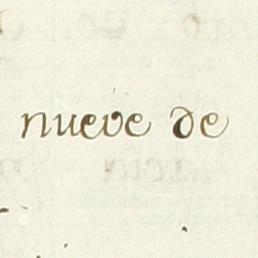 nueve de